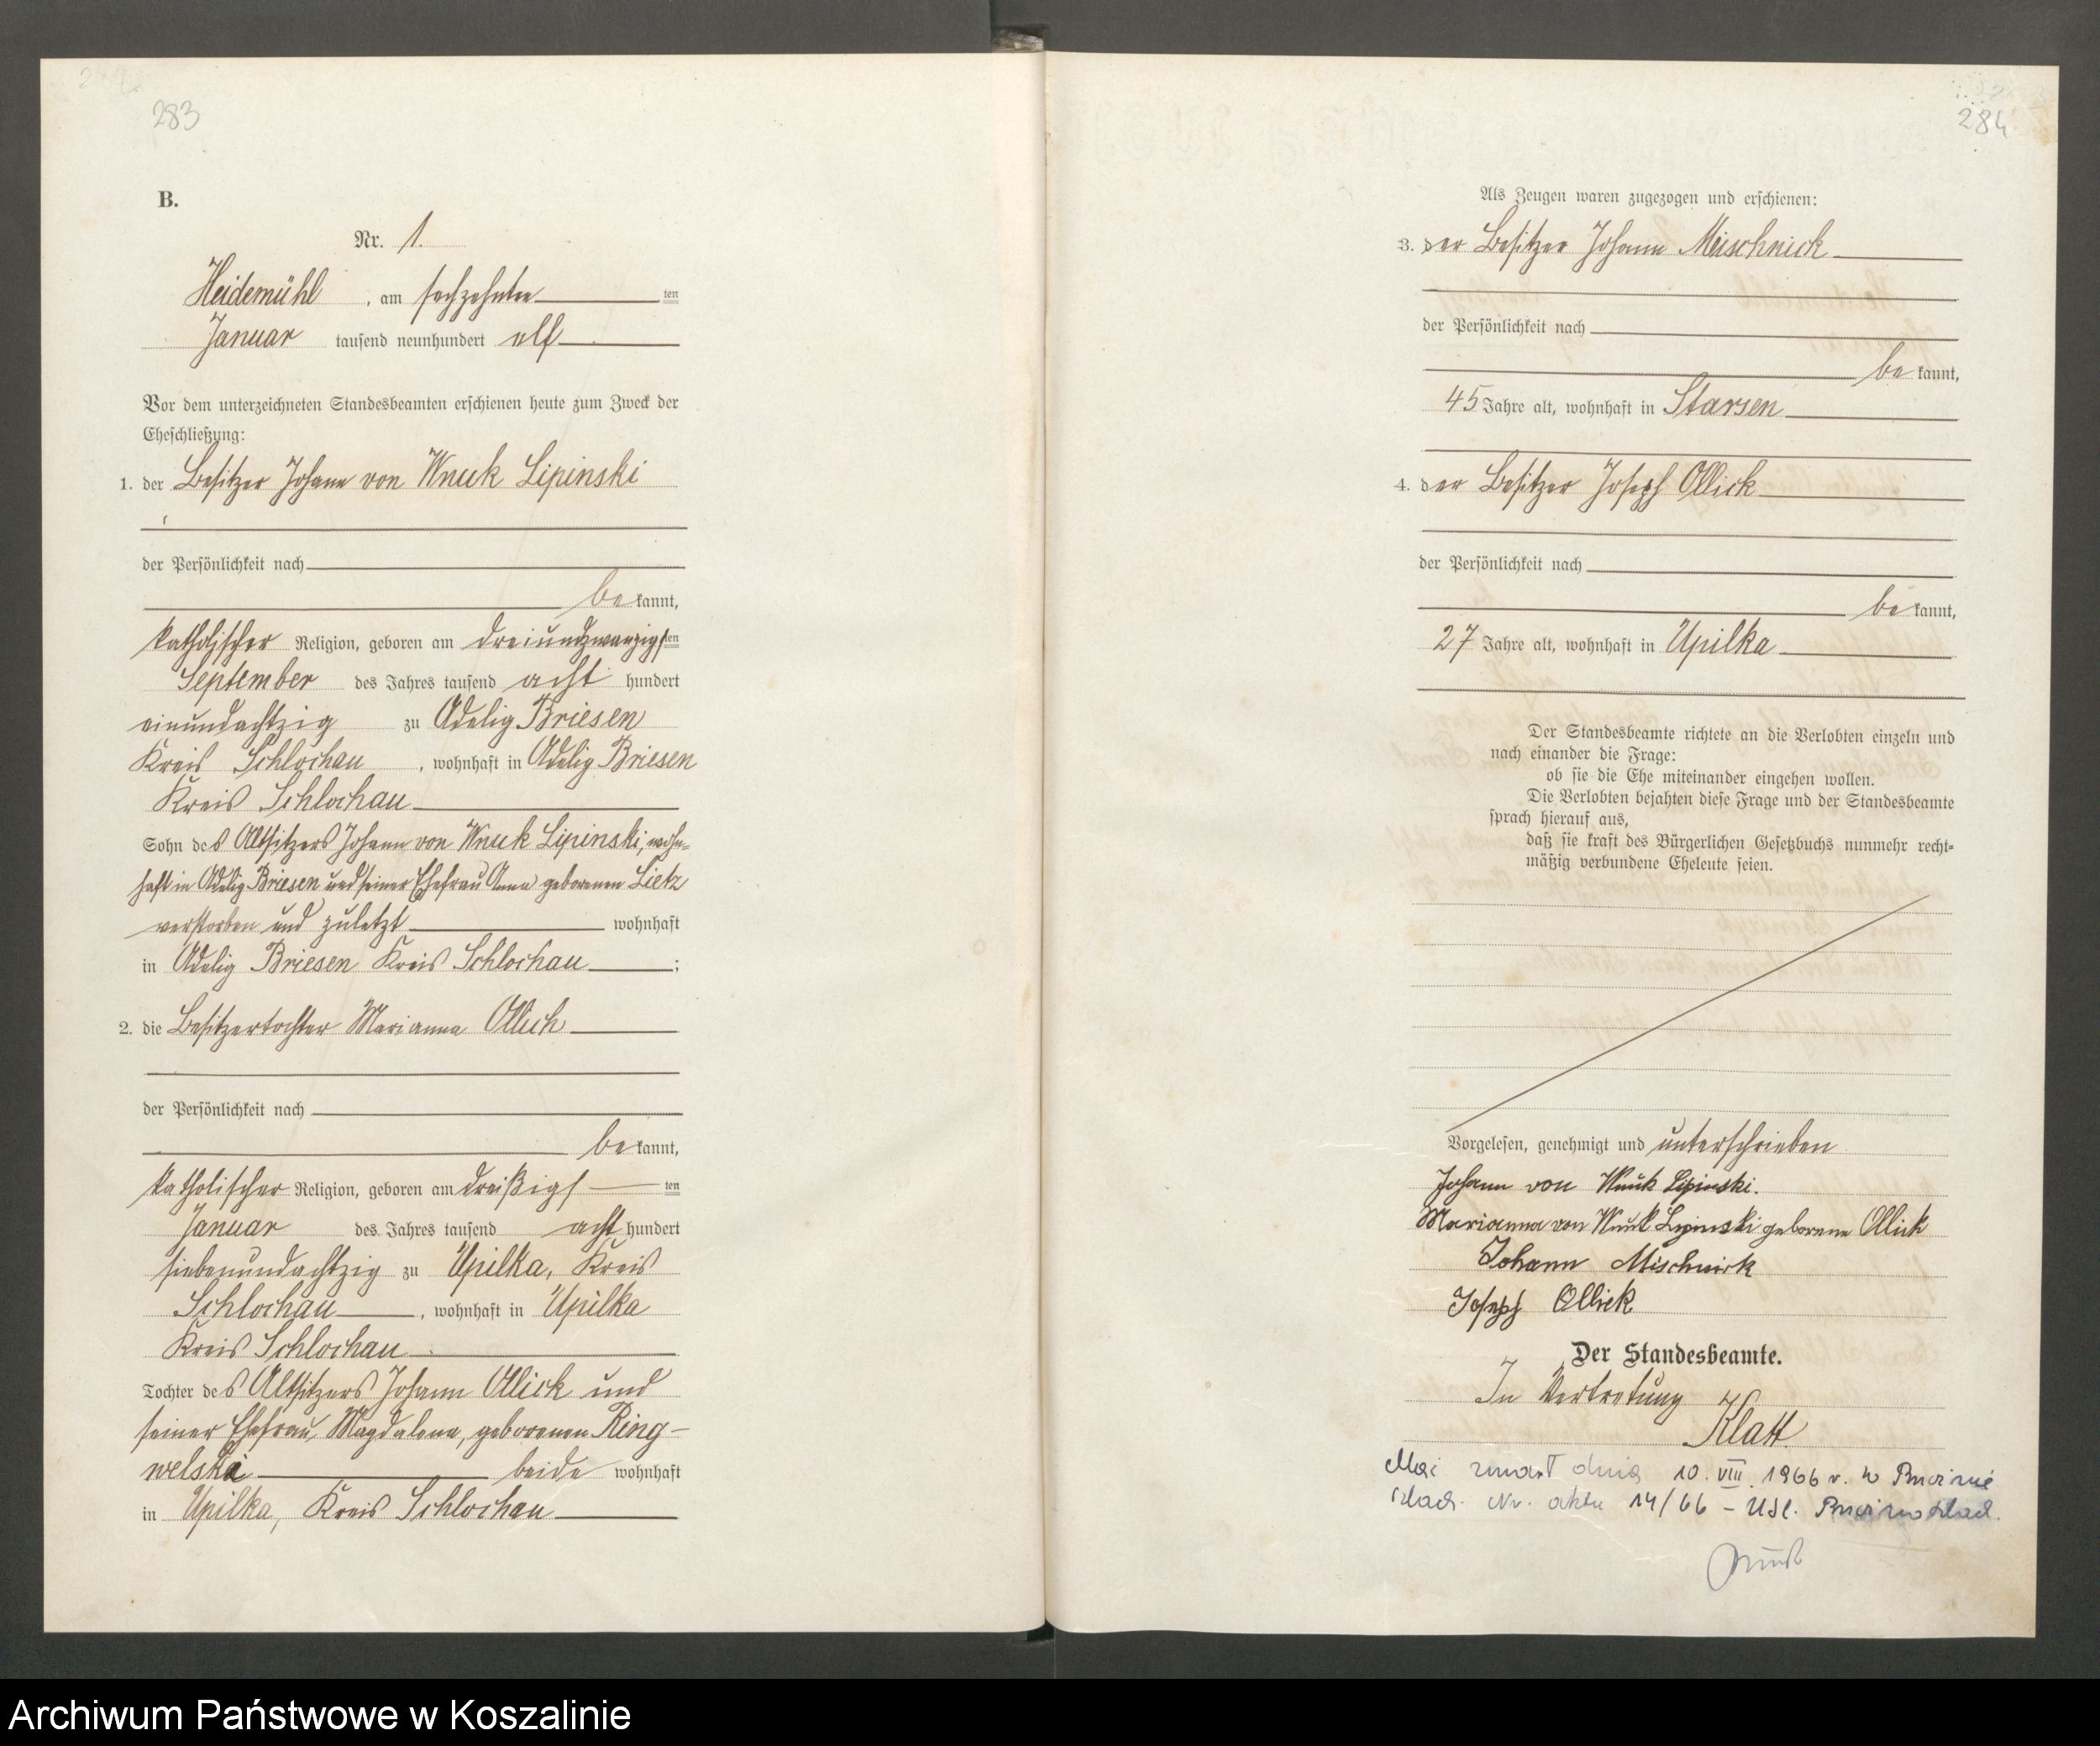 283
B.
Nr. 1.
Heidemühl, am sechzehnten ten
Januar tausend neunhundert elf
Vor dem unterzeichneten Standesbeamten erschienen heute zum Zweck der
Eheschließung:
1. der Besitzer Johann von Wnuk Lipinski
der Persönlichkeit nach
be kannt,
katholischer Religion, geboren am dreiundzwanzigsten
September des Jahres tausend acht hundert
einundachtzig zu Adelig Briesen
Kreis Schlochau, wohnhaft in Adelig Briesen
Kreis Schlochau
Sohn des Altsitzers Johann von Wnuk Lipinski, wohn-
haft in Adelig Briesen und seiner Ehefrau Anna geborenen Lietz
verstorben und zuletzt wohnhaft
in Adelig Briesen Kreis Schlochau;
2. die Besitzertochter Marianna Ollick
der Persönlichkeit nach
be kannt,
katholischer Religion, geboren am dreißigs ten
Januar des Jahres tausend acht hundert
siebenundachtzig zu Upilka, Kreis
Schlochau, wohnhaft in Upilka
Kreis Schlochau
Tochter des Altsitzers Johann Ollick und
seiner Ehefrau, Magdalena, geborenen Ring-
welski beide wohnhaft
in Upilka, Kreis Schlochau
284
Als Zeugen waren zugezogen und erschienen:
3. der Besitzer Johann Meischnick
der Persönlichkeit nach
be kannt,
45 Jahre alt, wohnhaft in Starsen
4. der Besitzer Joseph Ollick
der Persönlichkeit nach
be kannt,
27 Jahre alt, wohnhaft in Upilka
Der Standesbeamte richtete an die Verlobten einzeln und
nach einander die Frage:
ob sie die Ehe miteinander eingehen wollen.
Die Verlobten bejahten diese Frage und der Standesbeamte
sprach hierauf aus,
daß sie kraft des Bürgerlichen Gesetzbuchs nunmehr recht-
mäßig verbundene Eheleute seien.
Vorgelesen, genehmigt und unterschrieben
Johann von Wnuk Lipinski.
Marianna von Wnuk Lipinski geborene Ollick
Johann Mischnick
Joseph Ollick
Der Standesbeamte.
In Vertretung
Klatt
Mąż zmarł dnia 10. VIII. 1966 r. w
Nr. aktu 14/66 – USC.
Archiwum Państwowe w Koszalinie